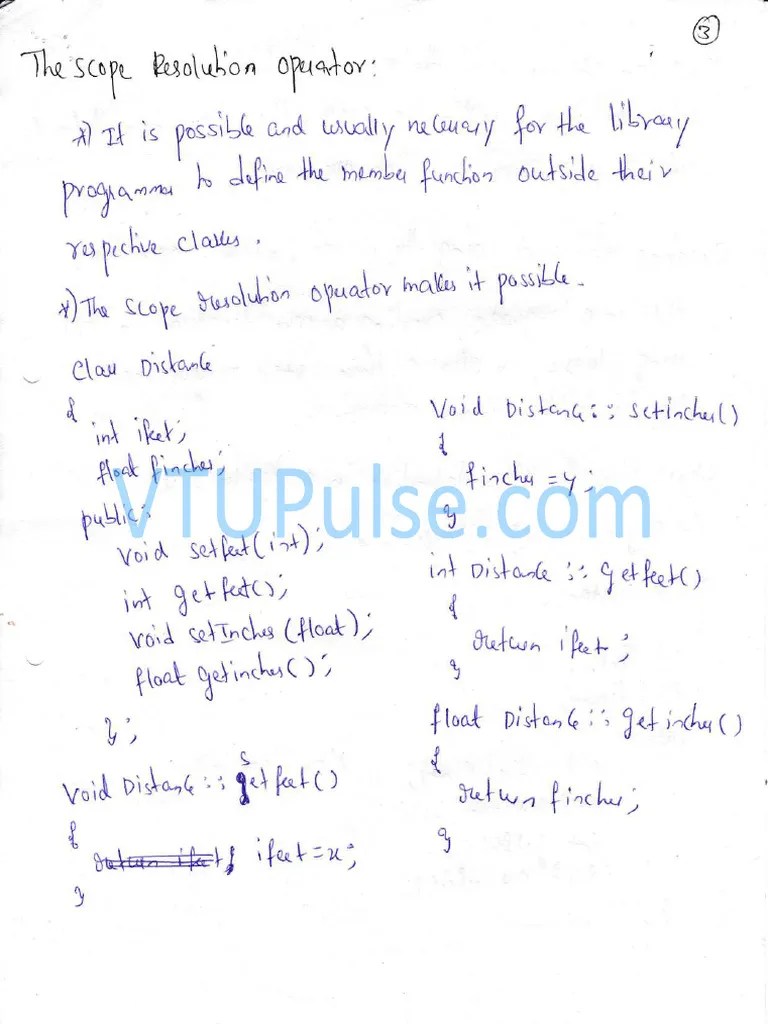 3
The scope Resolution operator:
*) It is possible and usually necessary for the library
programmer to define the member function outside their
respective classes.
*) The scope resolution operator makes it possible.
class Distance
{
int ifeet;
float finches;
public:
void setfeet(int);
int getfeet();
void setInches(float);
float getinches();
};
void Distance::setfeet()
{
return ifeet; ifeet=x;
}
void Distance::setinches()
{
finches=y;
}
int Distance::getfeet()
{
return ifeet;
}
float Distance::getinches()
{
return finches;
}
VTUPulse.com